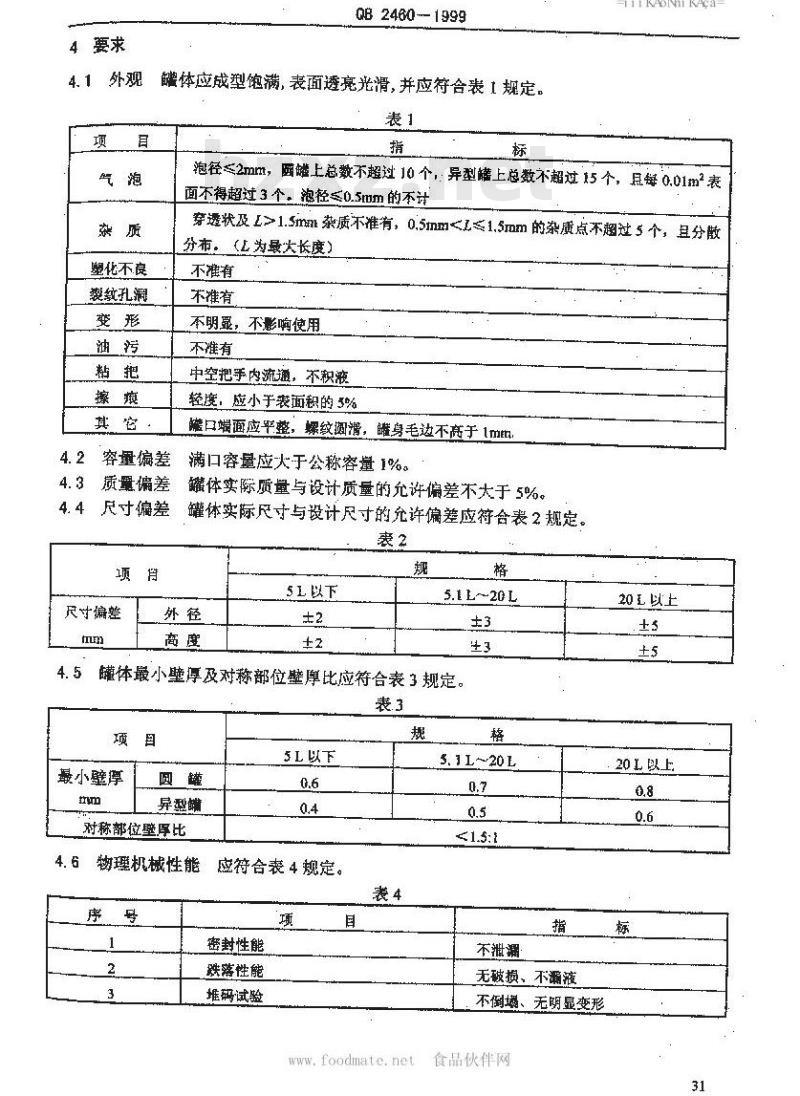 QB 2460—1999
4 要求
4.1 外观 罐体应成型饱满,表面透亮光滑,并应符合表1规定。
表1
项 目 指 标
气 泡 泡径≤2mm，圆罐上总数不超过10个，异型罐上总数不超过15个，且每0.01m²表
面不得超过3个。泡径≤0.5mm的不计
杂 质 穿透状及L>1.5mm杂质不准有，0.5mm<L≤1.5mm的杂质点不超过5个，且分散
分布。（L为最大长度）
塑化不良 不准有
裂纹孔洞 不准有
变 形 不明显，不影响使用
油 污 不准有
粘 把 中空把手内流通，不积液
擦 痕 轻度，应小于表面积的5%
其 它 罐口端面应平整，螺纹圆滑，罐身毛边不高于1mm.
4.2 容量偏差 满口容量应大于公称容量1%。
4.3 质量偏差 罐体实际质量与设计质量的允许偏差不大于5%。
4.4 尺寸偏差 罐体实际尺寸与设计尺寸的允许偏差应符合表2规定。
表2
项 目 规 格
5L以下 5.1L～20L 20L以上
尺寸偏差 外 径 ±2 ±3 ±5
mm 高 度 ±2 ±3 ±5
4.5 罐体最小壁厚及对称部位壁厚比应符合表3规定。
表3
项 目 规 格
5L以下 5.1L～20L 20L以上
最小壁厚 圆 罐 0.6 0.7 0.8
mm 异型罐 0.4 0.5 0.6
对称部位壁厚比 <1.5:1
4.6 物理机械性能 应符合表4规定。
表4
序 号 项 目 指 标
1 密封性能 不泄漏
2 跌落性能 无破损、不漏液
3 堆码试验 不倒塌、无明显变形
www.foodmate.net 食品伙伴网
31